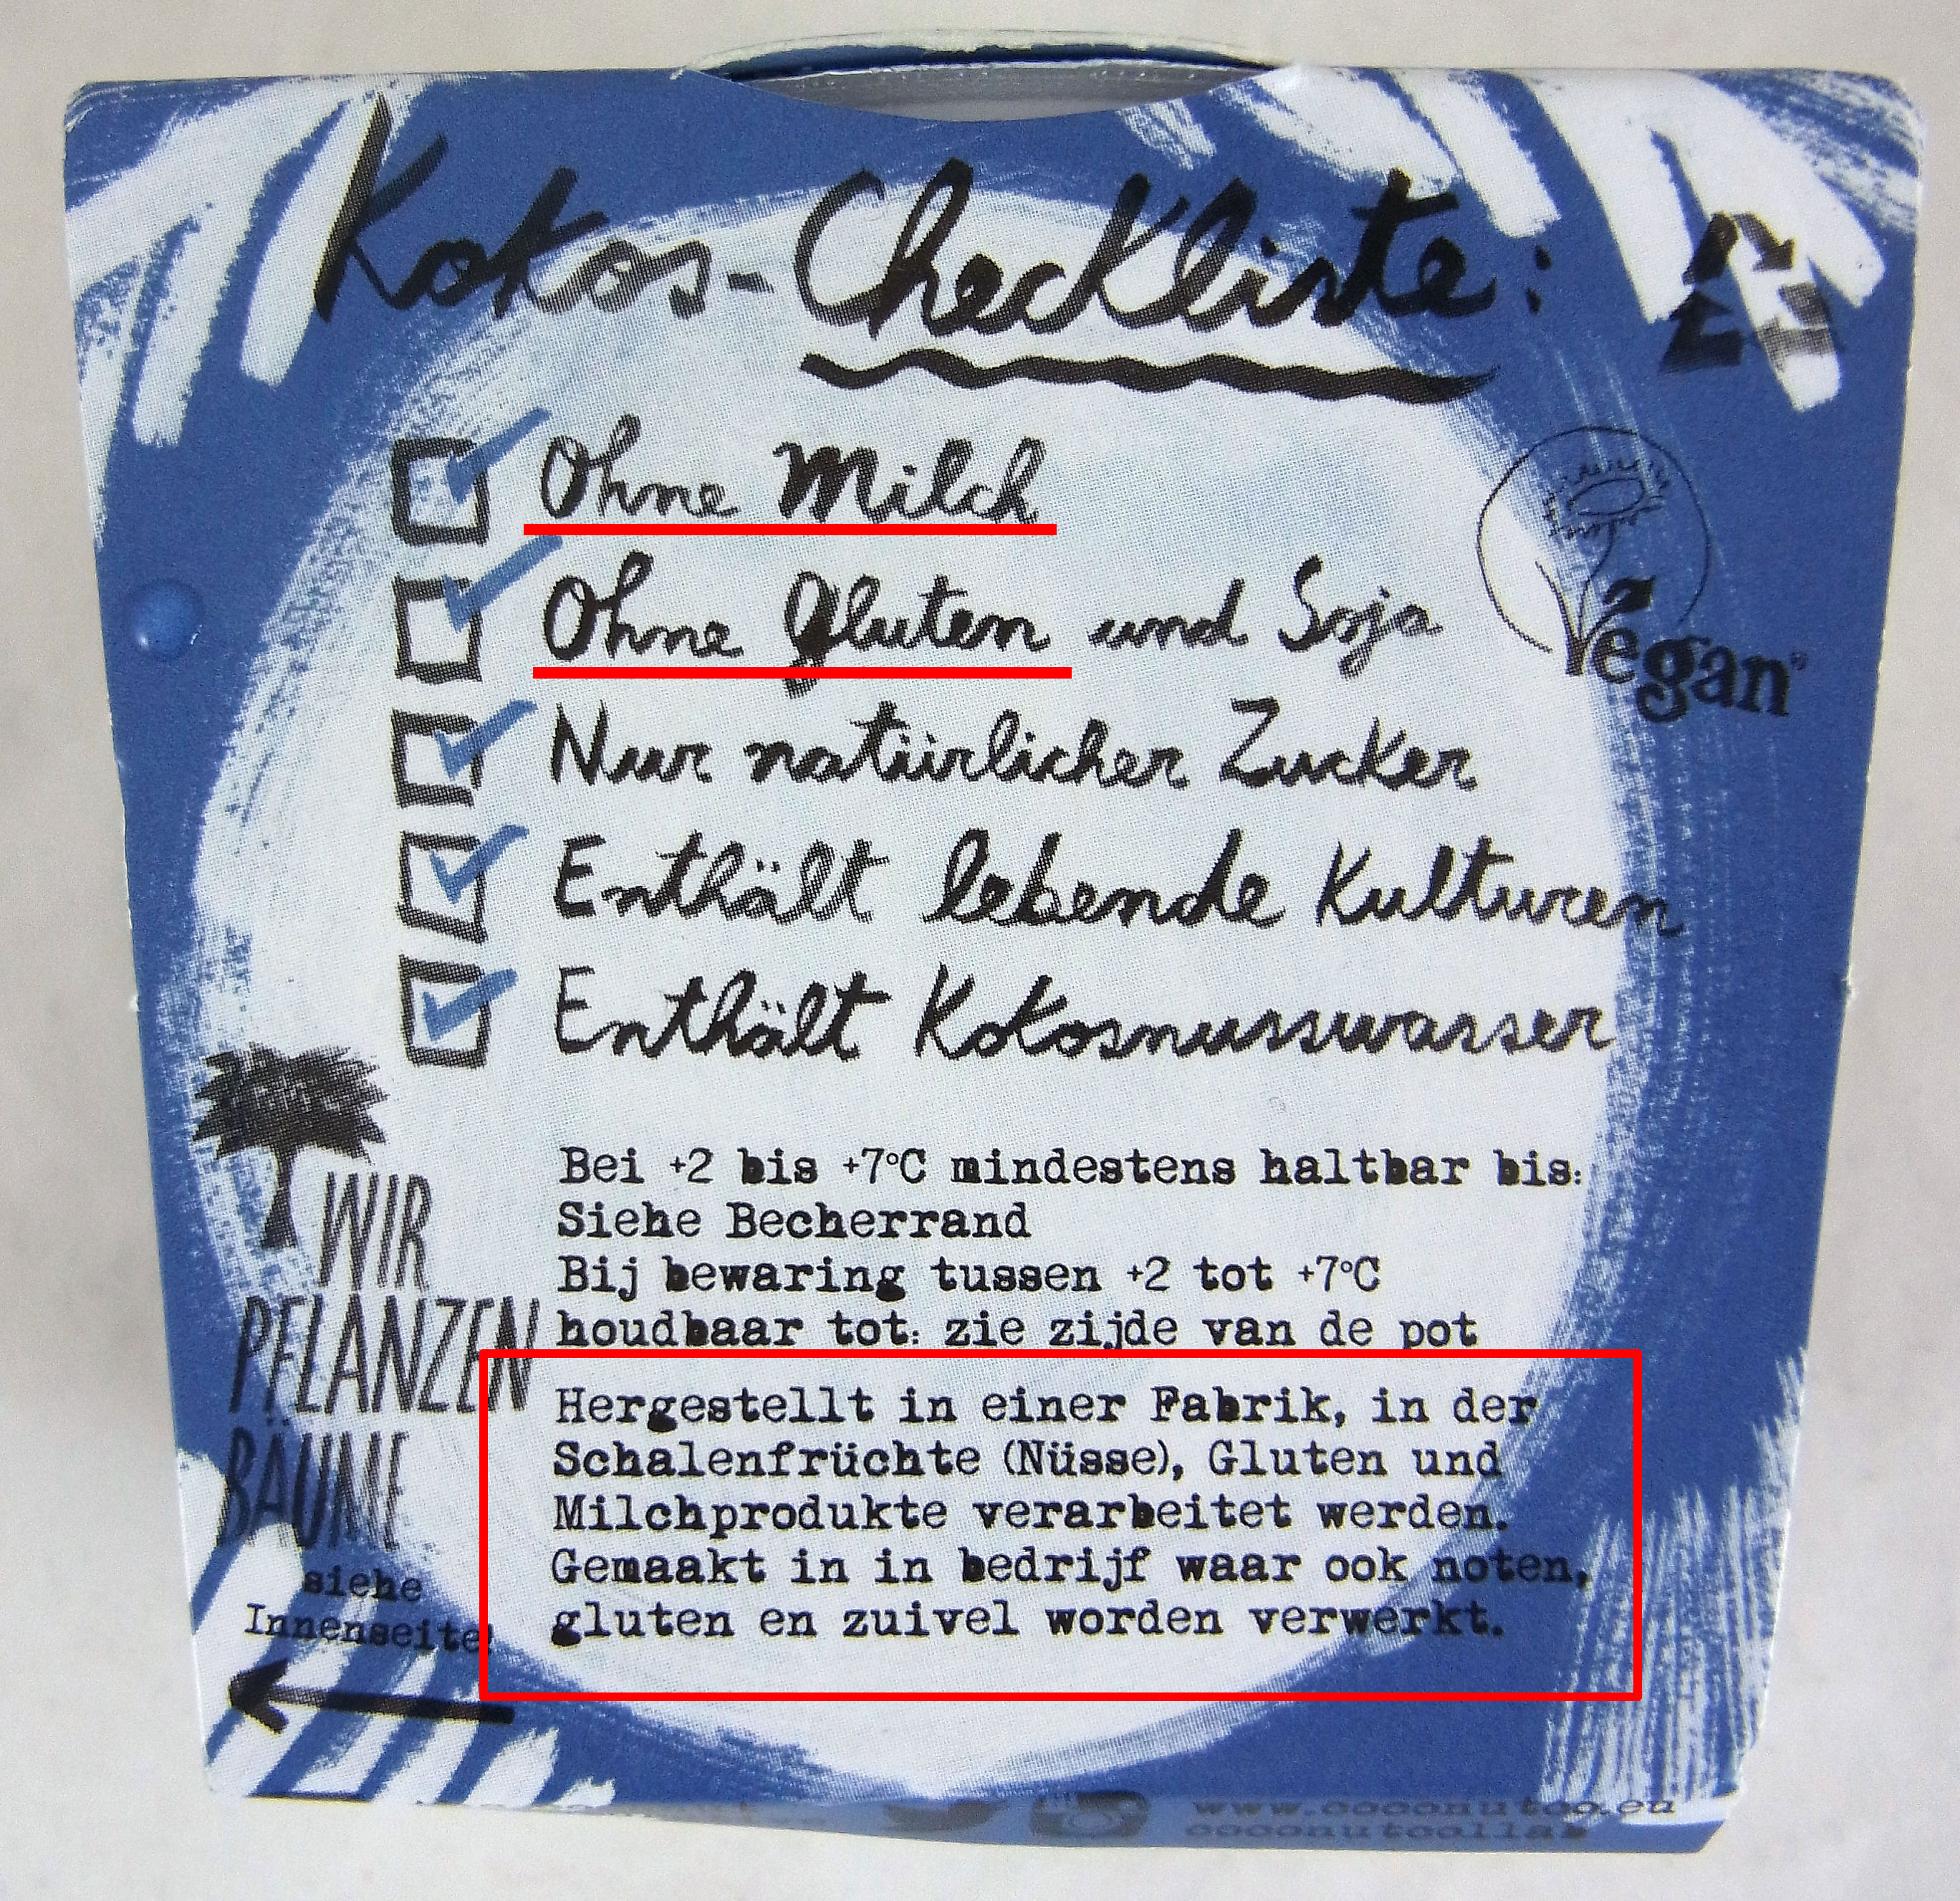 Kokos-Checkliste:
Ohne Milch
Ohne Gluten und Soja
Nur natürlicher Zucker
Enthält lebende Kulturen
Enthält Kokosnusswasser
Vegan
Bei +2 bis +7°C mindestens haltbar bis:
Siehe Becherrand
Bij bewaring tussen +2 tot +7°C
houdbaar tot: zie zijde van de pot
Hergestellt in einer Fabrik, in der
Schalenfrüchte (Nüsse), Gluten und
Milchprodukte verarbeitet werden.
Gemaakt in in bedrijf waar ook noten,
gluten en zuivel worden verwerkt.
WIR
PFLANZEN
BÄUME
siehe
Innenseite!